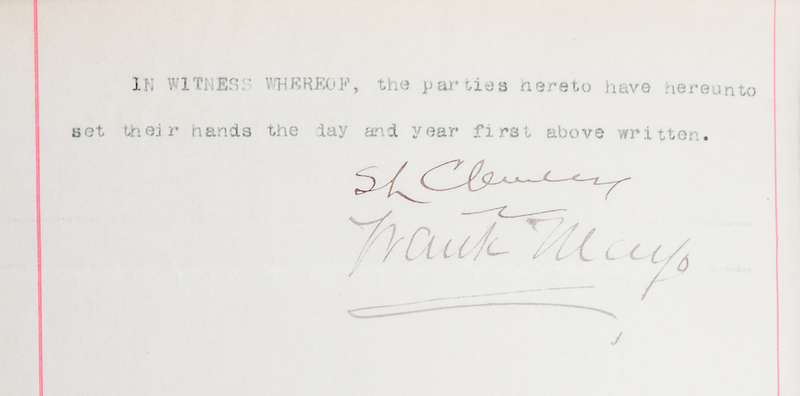 IN WITNESS WHEREOF, the parties hereto have hereunto
set their hands the day and year first above written.
SL Clemens
Frank Mayo